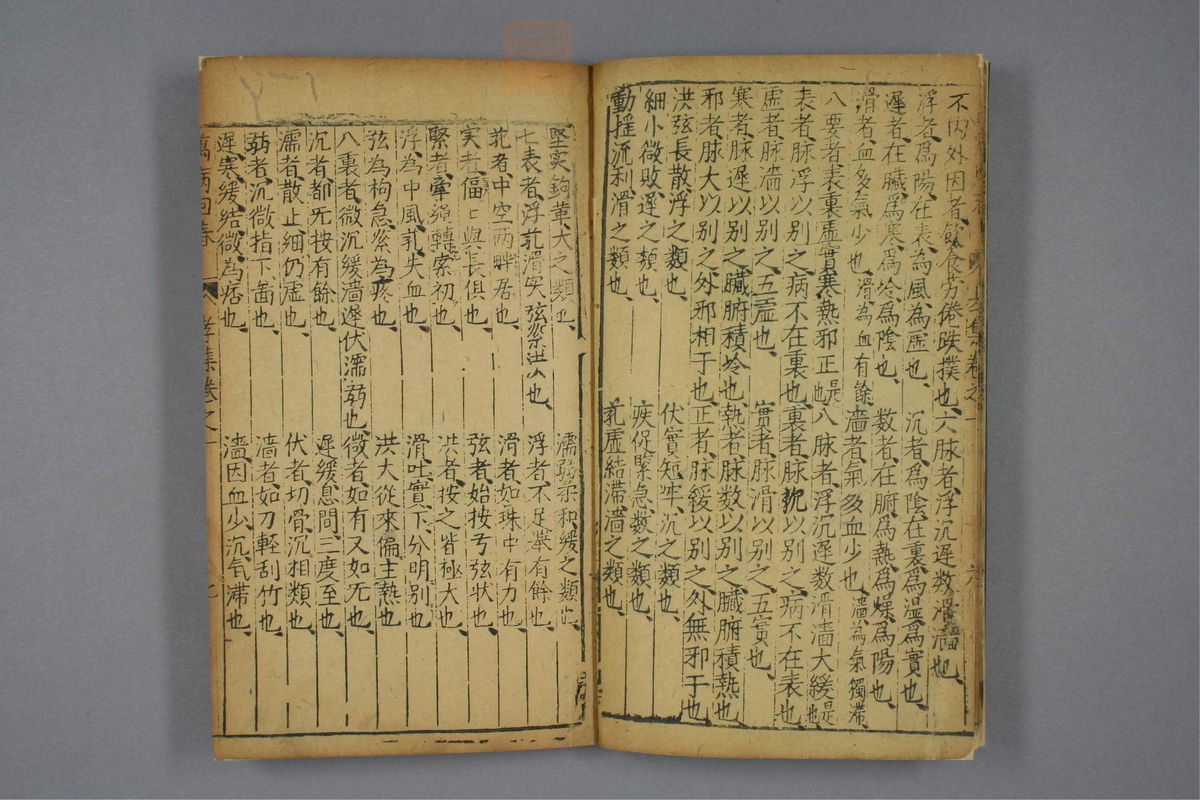 不内外因者飲食労倦跌撲也六脉者浮沉遲数滑濇也
浮者為陽在表為風為虚也 沉者為陰在裏為湿為實也
遲者在臓為寒為冷為陰也 数者在腑為熱為燥為陽也
滑者血多氣少也滑為血有餘 濇者氣多血少也濇為氣獨滯
八要者表裏虚實寒熱邪正也是八脉者浮沉遲数滑濇大緩是也
表者脉浮以别之病不在裏也 裏者脉沉以别之病不在表也
虚者脉濇以别之五虚也 實者脉滑以别之五實也
寒者脉遲以别之臓腑積冷也 熱者脉数以别之臓腑積熱也
邪者脉大以别之外邪相于也 正者脉緩以别之外無邪于也
洪弦長散浮之類也 伏實短牢沉之類也
細小微敗遲之類也 疾促緊急数之類也
動摇流利滑之類也 芤虚結滯濇之類也
堅实鉤革大之類也 濡弱柔和緩之類也
七表者浮芤滑实弦緊洪也 浮者不足舉有餘也
芤者中空两畔居也 滑者如珠中有力也
実者偪〻與長俱也 弦者始按弓弦狀也
緊者牽繩轉索初也 洪者按之皆極大也
浮為中風芤失血也 滑吐實下分明别也
弦為拘急緊為疼也 洪大從來偏主熱也
八裏者微沉緩濇遲伏濡弱也 微者如有又如无也
沉者都无按有餘也 遲緩息間三度至也
濡者散止細仍虚也 伏者切骨沉相類也
弱者沉微指下啚也 濇者如刀軽刮竹也
遲寒緩結微為痞也 濇因血少沉氣滯也
萬病回春 孝集卷之一